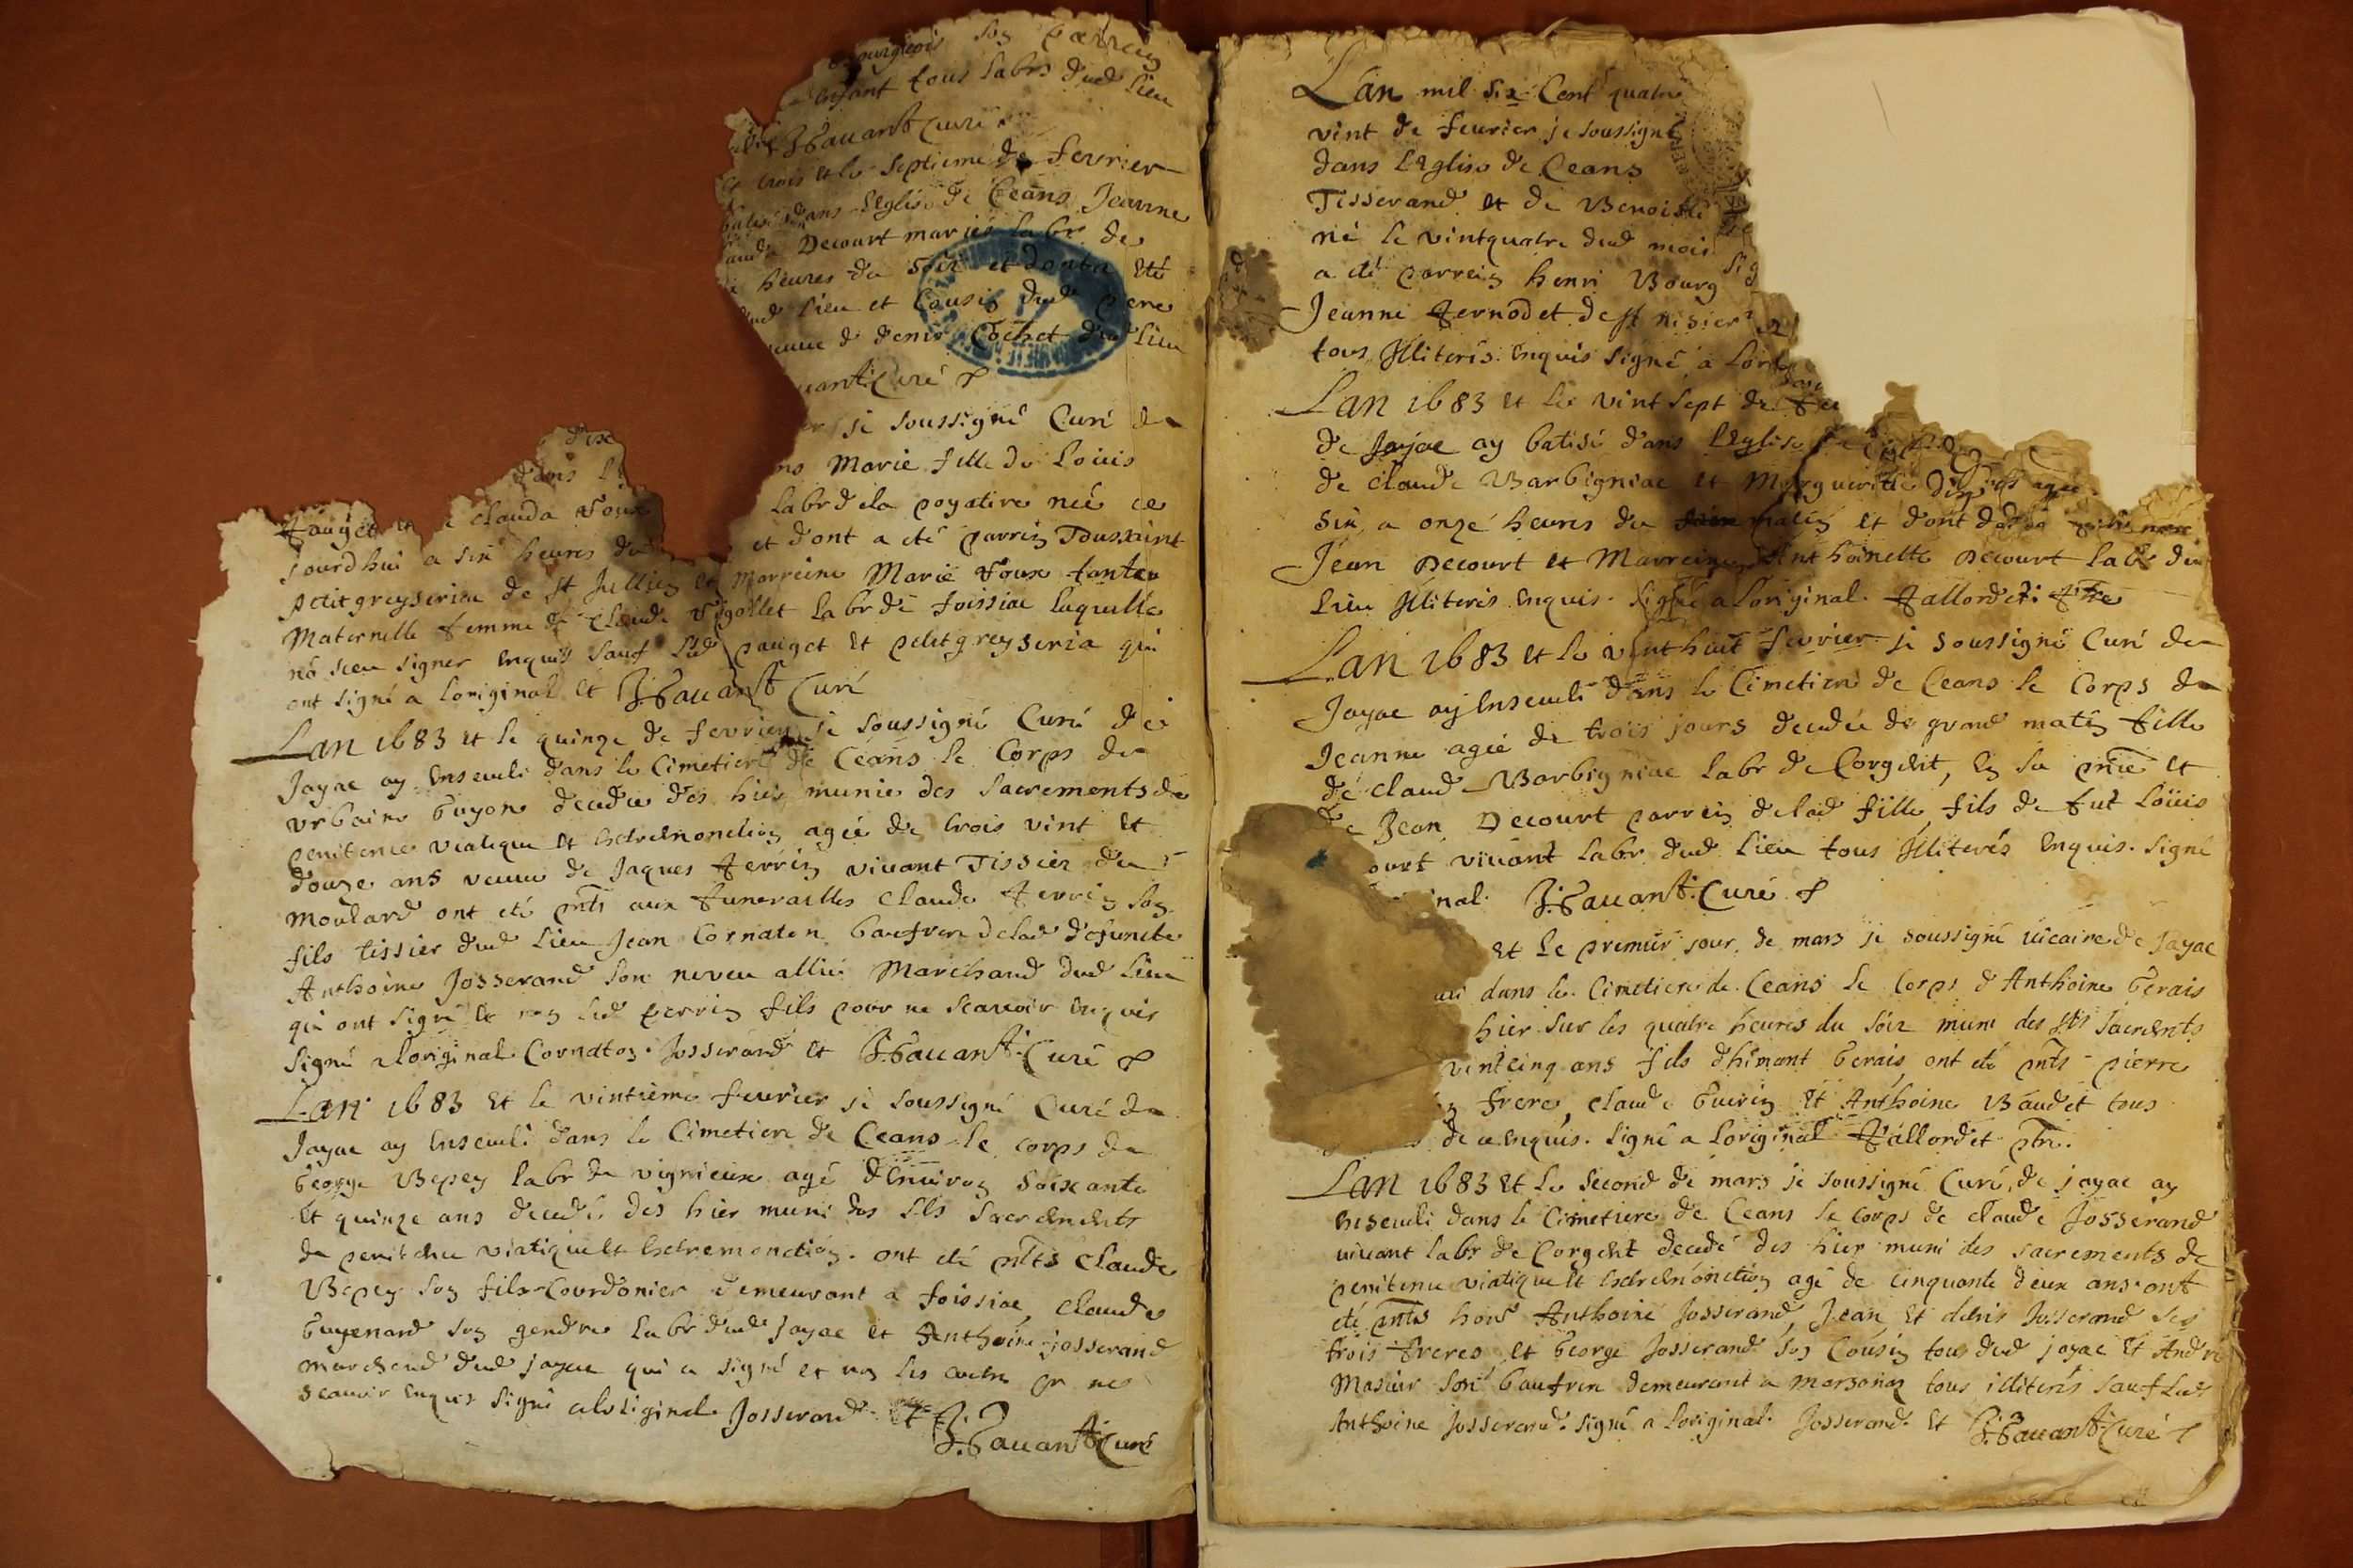 bourgeois son parrein
enfant tous labrs dud lieu
J. Gauant Curé
et trois et le septieme de fevrier
dans leglise de Ceans Jeanne
Decourt mariés labr de
heures du soir et dont a eté
dud lieu et Cousin dud pere
de denis Cochet dud lieu
Curé
je soussigné Curé de
Marie fille de Loüis
dans
pauget et de clauda Joux labr de la poyatiere neé ce
jourdhui a six heures du et dont a eté parrein Toussaint
petitgreyseria de st Jullien et marreine Marie Joux tante
maternelle femme de claude labr de foissiac laquelle
na sceu signer enquis sauf led pauget et petitgreyseria qui
ont signé a loriginal et J. Gauant Curé
Lan 1683 et le quinze de fevrier je soussigné Curé de
Jayac ay enseveli dans le Cimetiere de Ceans le Corps de
urbaine Guyon decedeé des hier munie des sacrements de
penitence viatique et extremonction ageé de trois vint et
douze ans veuve de Jaques perrin vivant Tissier du
moulard ont eté pnts aux funerailles claude perrin son
fils tissier dud lieu Jean Cornaton baufrere de lad defuncte
Anthoine Josserand son neveu allié Marchand dud lieu
qui ont signé et non led perrin fils pour ne scavoir enquis
signé a loriginal Cornaton Josserand et J. Gauant Curé
Lan 1683 et le vintieme fevrier je soussigné Curé de
Jayac ay enseveli dans le Cimetiere de Ceans le corps de
George Bepey labr de vignieux agé denviron soixante
et quinze ans decedé des hier muni des sts sacrements
de penitence viatique et extremonction ont eté pnts claude
Bepey son fils Courdonier demeurant a foissiac, claude
Guyenard son gendre labr dud Jayac et Anthoine Josserand
marchand dud jayac qui a signé et non les autres pr ne
scavoir enquis signé a loriginal Josserand et
J. Gauant Curé
Lan mil six Cent quatre
vint de fevrier je soussigné
dans leglise de Ceans
Tisserand et de Benoiste
né le vintquatre dud mois
a eté parrein henri Bourg
Jeanne pernodet de st nisier
tous illiterés enquis signé a
Lan 1683 et le vint sept de
de Jayac ay batisé dans leglise
de claude Barbigniac et Marguerite
six a onze heures du matin et dont
Jean Decourt et Marreine Anthoinette Decourt labr du
lieu illiterés enquis signé a loriginal pallordet ptre
Lan 1683 et le vint huit fevrier je soussigné Curé de
Jayac ay enseveli dans le Cimetiere de Ceans le Corps de
Jeanne ageé de trois jours decedeé de grand matin fille
de claude Barbigniac labr de Corgent, en la pnce et
de Jean Decourt parrein de lad fille, fils de fut Loüis
ourt vivant labr dud lieu tous illiterés enquis signé
inal J. Gauant Curé
et le premier jour de mars je soussigné vicaire de Jayac
dans le Cimetiere de Ceans le Corps d'Anthoine Gerais
hier sur les quatre heures du soir muni des sts sacrents
vintcinq ans fils dhimant Gerais, ont eté pnts pierre
frere, claude Guerin et Anthoine Baudet tous
de ce enquis signé a loriginal pallordet ptre
Lan 1683 et le second de mars je soussigné Curé de jayac ay
enseveli dans le Cimetiere de Ceans le corps de claude Josserand
vivant labr de Corgent decedé des hier muni des sacrements de
penitence viatique et extremonction agé de cinquante deux ans ont
eté pnts Anthoine Josserand, Jean et denis Josserand ses
trois freres et George Josserand son Cousin tous dud jayac et André
Masuir son baufrere demeurant a marsonas tous illiterés sauf led
Anthoine Josserand signé a loriginal Josserand et J. Gauant Curé